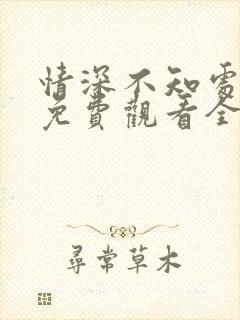 情深不知處
免費觀看全
尋常草木